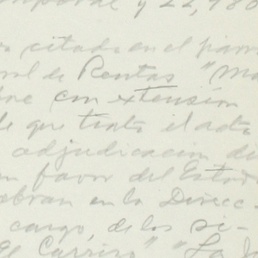 temporal y 22,980
os citado en el párra
ral de Rentas "Ma
bre con extensión
de que trata el acta
adjudicación de
en favor del Estado
obran en la Direcc-
cargo, de los si-
"El Carrizo" "La